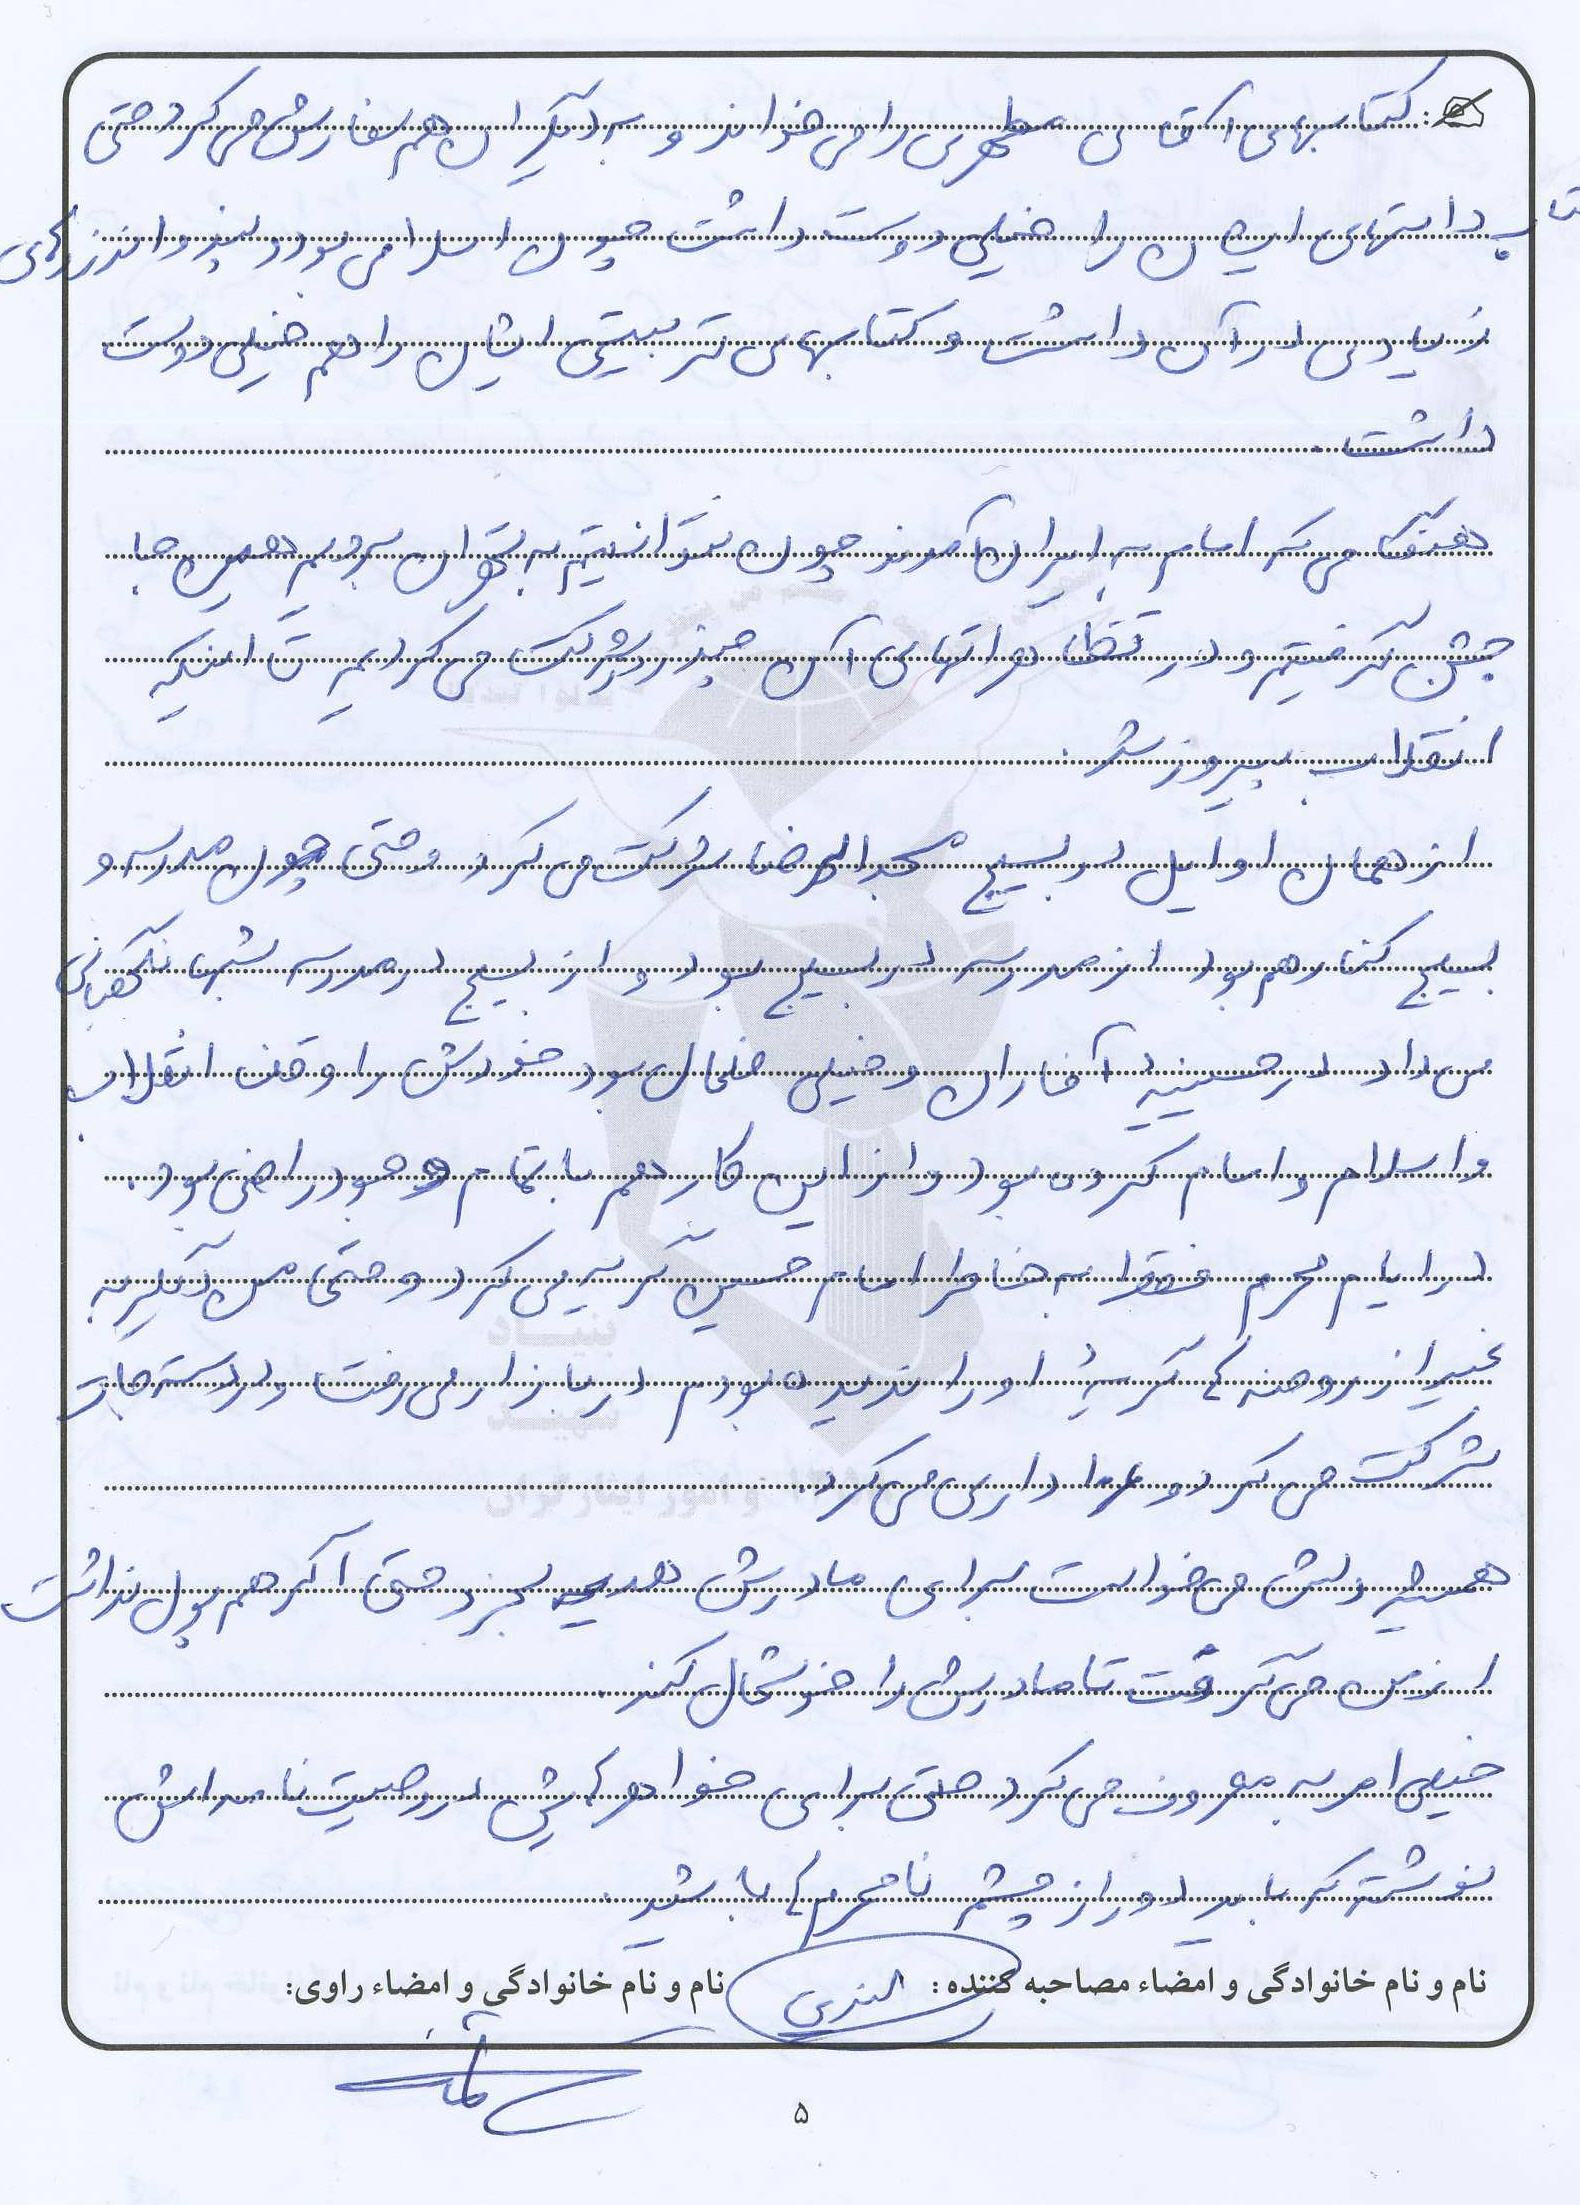 کتابهای آقای مطهری را می خواند و به دیگران هم سفارش می کرد حتی
کتاب داستهای ایشان را خیلی دوست داشت چون اسلامی بود و پند و اندرزهای
زیادی در آن داشت و کتابهای تربیتی ایشان را هم خیلی دوست
داشت.
هنگامی که امام به ایران آمدند چون نتوانستیم به تهران برویم همین جا
جشن گرفتیم و در تظاهراتهای آن چند روز شرکت می کردیم تا اینکه
انقلاب پیروز شد.
از همان اوایل در بسیج مسجد الرضا شرکت می کرد و حتی چون مدرسه و
بسیج کنار هم بود از مدرسه در بسیج بود و از بسیج در مدرسه شبها نگهبانی
می داد در حسینیهٔ آفاران و خیلی فعال بود خودش را وقف انقلاب
و اسلام و امام کرده بود و از این کار هم با تمام وجود راضی بود.
در ایام محرم فقط به خاطر امام حسین گریه می کرد و حتی من دیگر به
غیر از روضه ها گریهٔ او را ندیده بودم در بازار می رفت و در دسته جات
شرکت می کرد و عزاداری می کرد.
همیشه دلش می خواست برای مادرش هدیه بخرد حتی اگر هم پول نداشت
از من می گرفت تا مادرش را خوشحال کند.
خیلی امر به معروف می کرد حتی برای خواهرهایش در وصیت نامه اش
نوشته که باید دور از چشم نامحرم ها باشید.
نام و نام خانوادگی و امضاء مصاحبه کننده: نام و نام خانوادگی و امضاء راوی:
۵
بنیاد
شهید
و امور ایثارگران